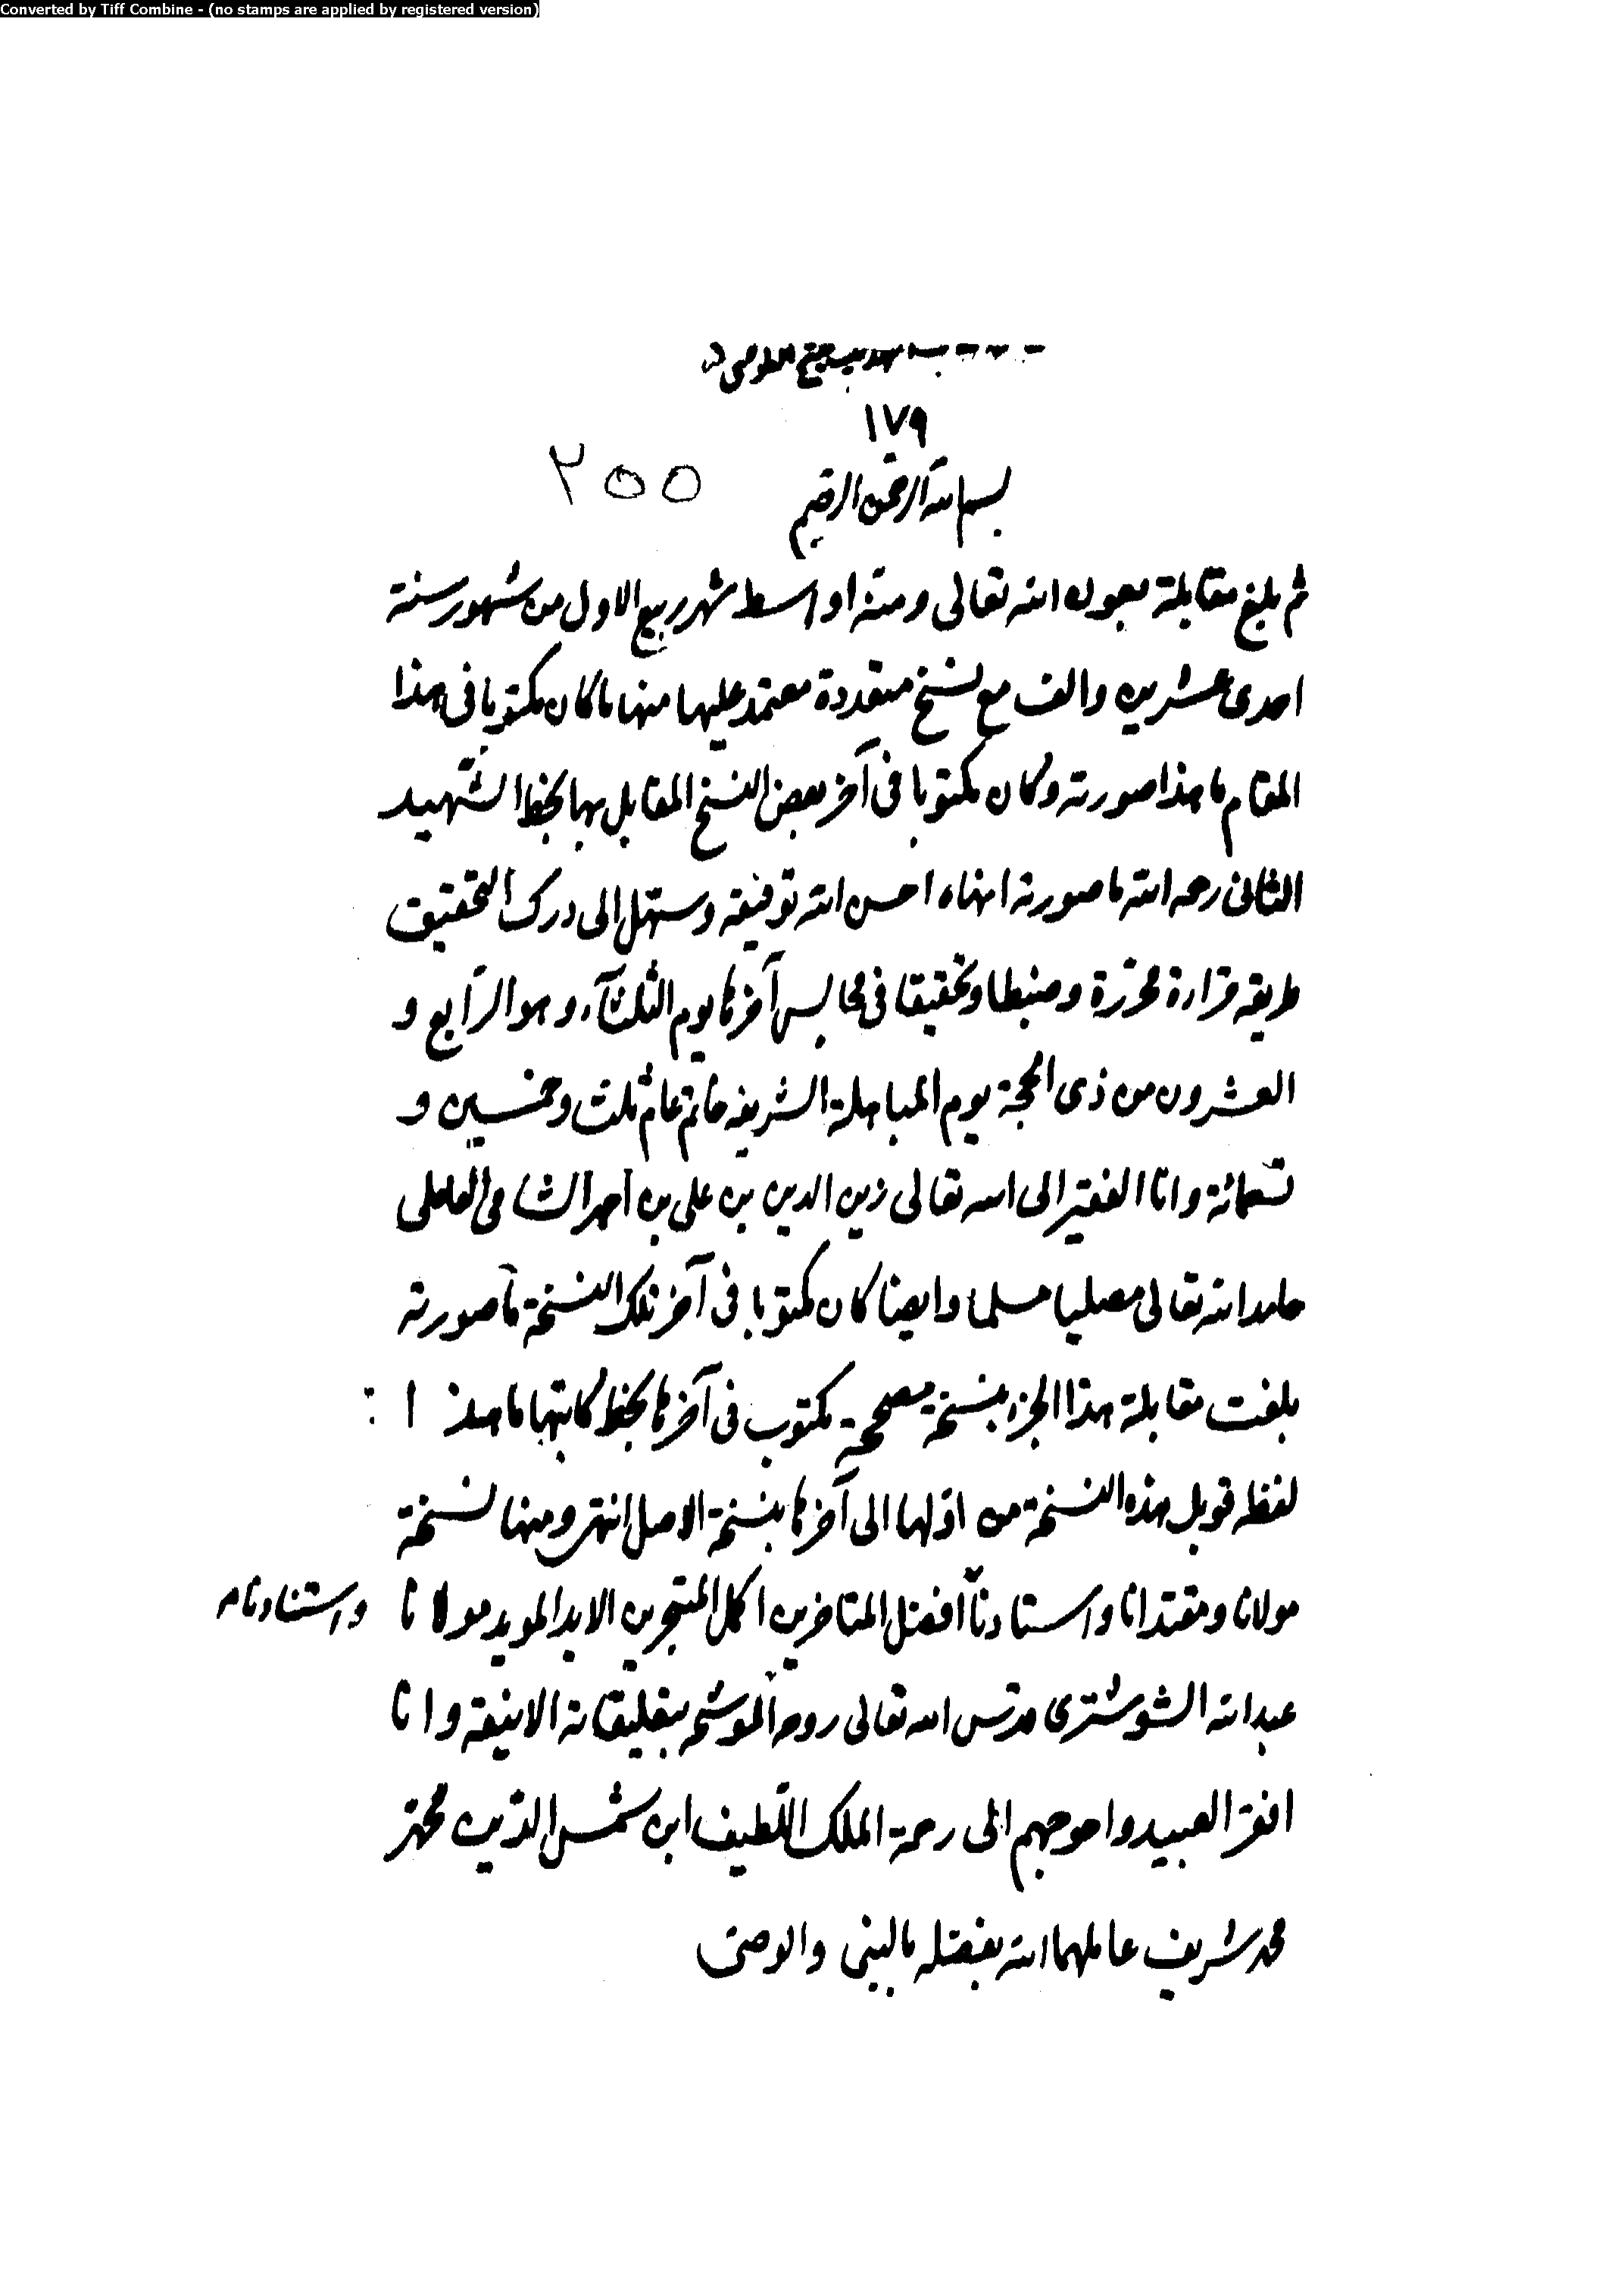 Converted by Tiff Combine - (no stamps are applied by registered version)
١٧٩
٢٥٥
بسم الله الرحمن الرحيم
ثم بلغ مقابلة بعون الله تعالى ومنه اواسط شهر ربيع الاول من شهور سنة
احدى عشرين والف مع نسخ متعددة معتمد عليها منها ما كان مكتوبا فى هذا
المقام ما هذا صورته وكان مكتوبا فى آخر بعض النسخ المقابل بها بخط الشهيد
الثانى رحمه الله ما صورته انهاه احسن الله توفيقه وسهل الى درك التحقيق
طريقه قراءة محررة وضبطا وتحقيقا فى مجالس آخرها يوم الثلثآء وهو الرابع و
العشرون من ذى الحجة يوم المباهلة الشريفه خاتم عام ثلث وخمسين و
تسعمائة وانا الفقير الى الله تعالى زين الدين بن على بن احمد الشامى العاملى
حامدا لله تعالى مصليا مسلما وايضا كان مكتوبا فى آخر تلك النسخة ما صورته
بلغت مقابلة هذا الجزء بنسخة مصححة مكتوب فى آخرها بخط كاتبها ما هذا
لفظه قوبل هذه النسخة من اولها الى آخرها بنسخة الاصل انتهى ومنها نسخة
مولانا ومقتدانا واستادنا افضل المتاخرين اكمل المتبحرين الابد المويد مولانا واستنادنا
عبد الله الشوشترى قدس الله تعالى روحه الموشحه بتعليقاته الانيقة وانا
افقر العبيد واحوجهم الى رحمة الملك اللطيف ابن شمس الدين محمد
محمد شريف عاملهما الله بفضله بالنبى والوصى